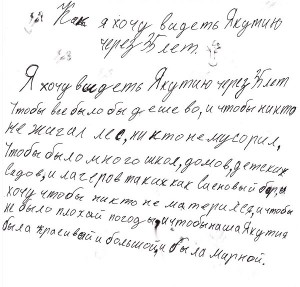 Как я хочу видеть Якутию
через 35 лет.
Я хочу видеть Якутию через 35 лет
Чтобы все было бы дешево, и чтобы никто
не жигал лес, никто не мусорил,
Чтобы было много школ, домов, детских
садов, и лагеров таких как Сосновый бор, я
хочу чтобы никто не матерился, и чтобы
не было плохай погоды, и чтобы наша Якутия
была красивой и большой, и была мирной.